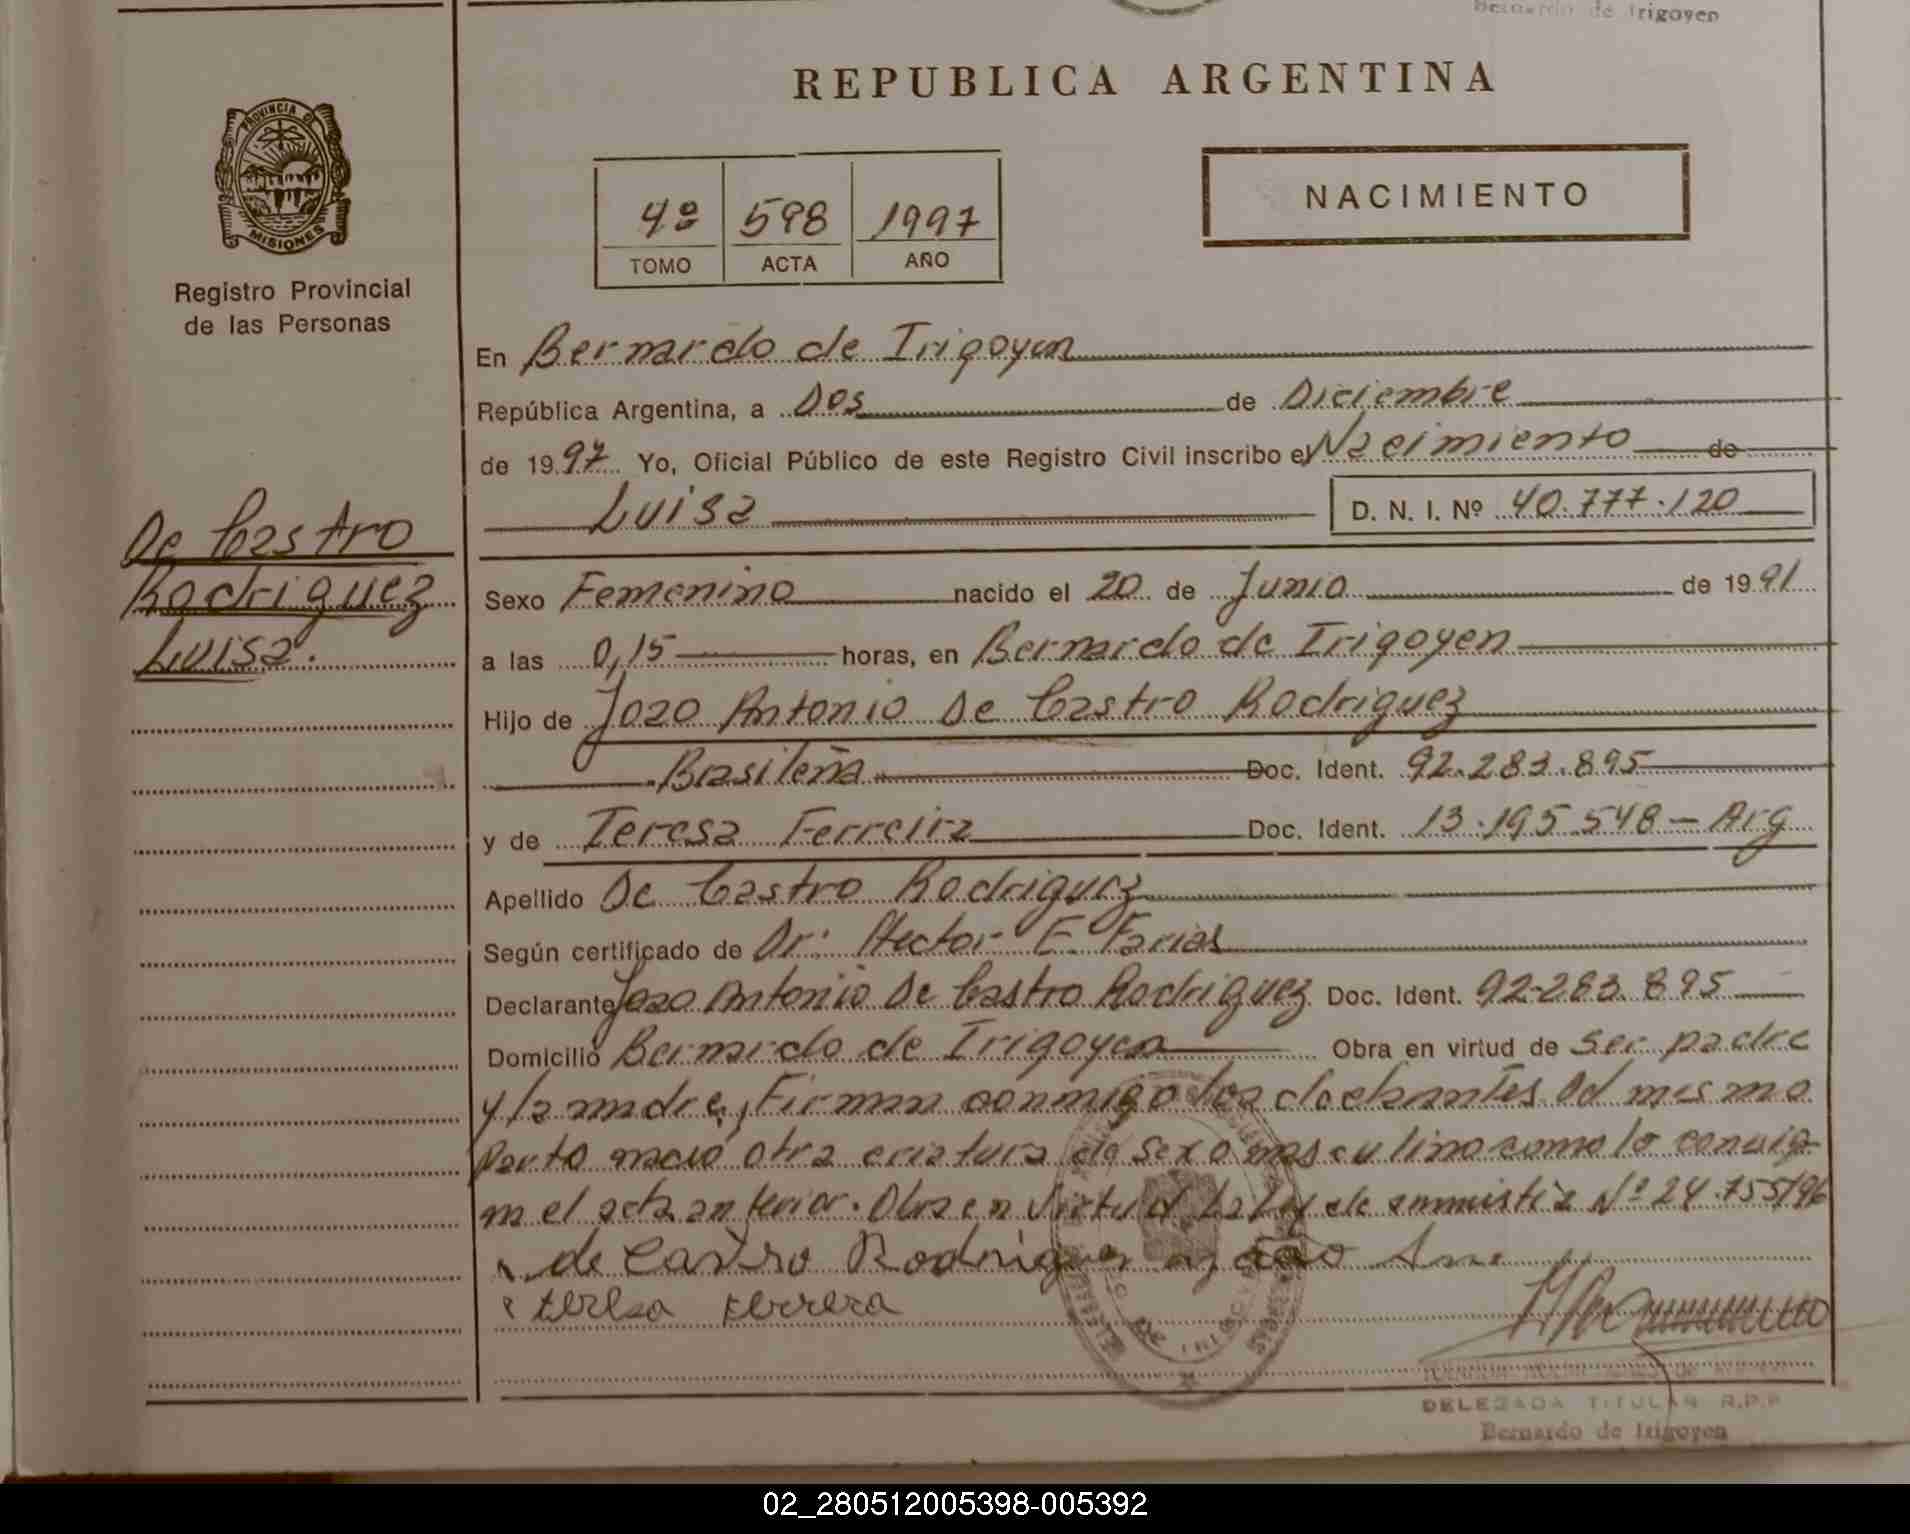 Bernardo de Irigoyen
REPUBLICA ARGENTINA
PROVINCIA DE
MISIONES
Registro Provincial
de las Personas
4º 598 1997
TOMO ACTA AÑO
NACIMIENTO
De Castro
Rodriguez
Luisa.
En Bernardo de Irigoyen
República Argentina, a Dos de Diciembre
de 1997 Yo, Oficial Público de este Registro Civil inscribo el Nacimiento de
Luisa D. N. I. Nº 40.777.120
Sexo Femenino nacido el 20 de Junio de 1991
a las 0,15 horas, en Bernardo de Irigoyen
Hijo de Joao Antonio De Castro Rodriguez
Brasileña Doc. Ident. 92.283.895
y de Teresa Ferreira Doc. Ident. 13.195.548 - Arg
Apellido De Castro Rodriguez
Según certificado de Dr: Hector E. Farias
Declarante Joao Antonio De Castro Rodriguez Doc. Ident. 92-283.895
Domicilio Bernardo de Irigoyen Obra en virtud de ser padre
y la madre, Firman conmigo los declarantes Del mismo
parto nació otra criatura de sexo masculino como lo consig-
na el acta anterior. Obra en virtud La Ley de amnistia Nº 24.755/96
de Castro Rodrigues
teresa Ferrera
DELEGADA TITULAR R.P.P
Bernardo de Irigoyen
02_280512005398-005392